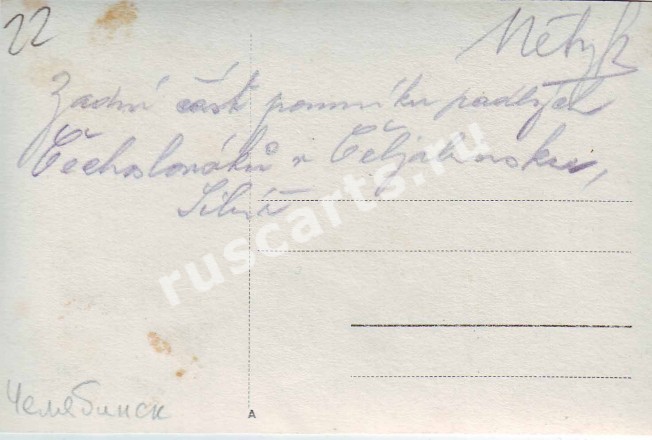 22
Zadní část pomníku padlých
Čechoslováků v Čeljabinsku,
Sibiř
Челябинск
A
ruscarts.ru